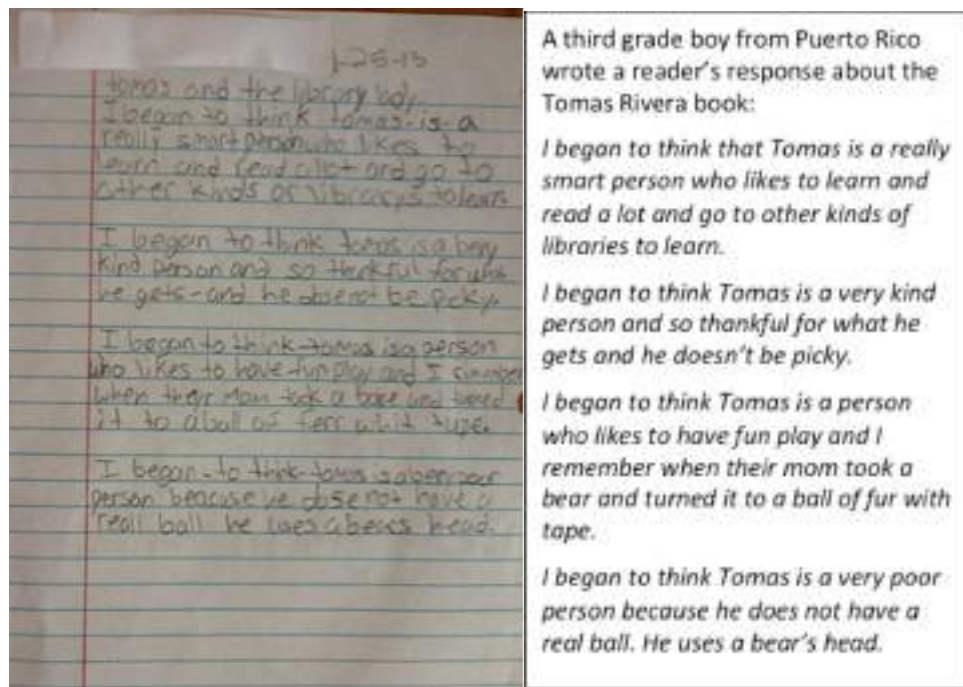 1-25-13
tomas and the library lady.
I began to think tomas-is-a
really smart person who likes to
learn and read alot and go to
other kinds of librarys to learn
I began to think tomas is a bery
kind person and so thenkful for what
he gets-and he dose not be picky.
I began to think-tomas is a person
who likes to have-fun play and I
when their mom took a bare and turned
it to a ball of ferr whit
I began-to think-tomas is a bery poor
person beacuse he dose not have a
reall ball he uses a bears head.
A third grade boy from Puerto Rico
wrote a reader's response about the
Tomas Rivera book:
I began to think that Tomas is a really
smart person who likes to learn and
read a lot and go to other kinds of
libraries to learn.
I began to think Tomas is a very kind
person and so thankful for what he
gets and he doesn't be picky.
I began to think Tomas is a person
who likes to have fun play and I
remember when their mom took a
bear and turned it to a ball of fur with
tape.
I began to think Tomas is a very poor
person because he does not have a
real ball. He uses a bear's head.